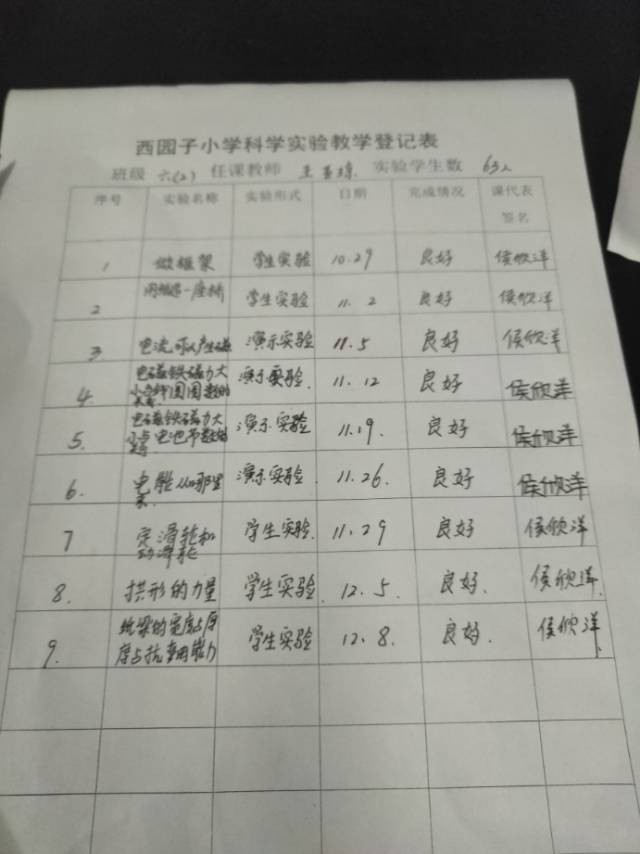 西园子小学科学实验教学登记表
班级 六(2) 任课教师 王 实验学生数 63人
序号 实验名称 实验形式 日期 完成情况 课代表签名
1 做框架 学生实验 10.29 良好 侯欣洋
2 用纸造一座桥 学生实验 11.2 良好 侯欣洋
3. 电流可以产生磁 演示实验 11.5 良好 侯欣洋
4. 电磁铁磁力大
小与线圈圈数的 演示实验. 11.12 良好 侯欣洋
5. 电磁铁磁力大
小与电池节数的 演示实验 11.19. 良好 侯欣洋
6. 电能从哪里
来 演示实验. 11.26. 良好 侯欣洋
7 定滑轮和
动滑轮 学生实验. 11.29 良好 侯欣洋
8. 拱形的力量 学生实验. 12.5. 良好. 侯欣洋.
9. 纸梁的宽度与厚
度与抗弯曲能力 学生实验 12.8. 良好. 侯欣洋